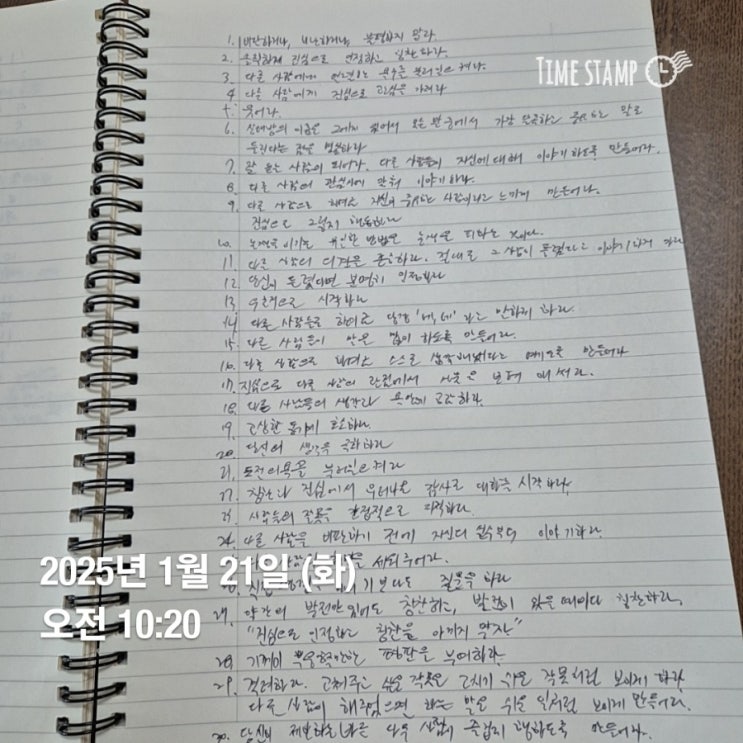 1. 비판하거나, 비난하거나, 불평하지 말라.
2. 솔직하게 진심으로 인정하고 칭찬하라.
3. 다른 사람에게 열렬한 욕구를 불러일으켜라.
4. 다른 사람에게 진심으로 관심을 가져라
5. 웃어라.
6. 상대방의 이름은 그에게 있어서 모든 말 중에서 가장 달콤하고 중요한 말로
들린다는 점을 명심하라
7. 잘 듣는 사람이 되어라. 다른 사람들이 자신에 대해 이야기하도록 만들어라.
8. 다른 사람의 관심사에 맞춰 이야기하라.
9. 다른 사람으로 하여금 자신이 중요한 사람이라고 느끼게 만들어라.
진심으로 그렇게 행동하라
10. 논쟁을 이기는 유일한 방법은 논쟁을 피하는 것이다.
11. 다른 사람의 의견을 존중하라. 절대로 그 사람이 틀렸다고 이야기하지 마라
12. 당신이 틀렸다면 분명히 인정하라
13. 우호적으로 시작하라
14. 다른 사람들로 하여금 당장 '네, 네' 라고 말하게 하라.
15. 다른 사람들이 말을 많이 하도록 만들어라.
16. 다른 사람으로 하여금 스스로 생각해냈다고 만들어라
17. 진심으로 다른 사람의 관점에서 사물을 보려 애써라.
18. 다른 사람들의 생각과 욕구에 공감하라.
19. 고상한 동기에 호소하라.
20. 당신의 생각을 극화하라
21. 도전의욕을 불러일으켜라
22. 칭찬과 진심에서 우러나온 감사로 대화를 시작하라.
23. 사람들의 잘못을 간접적으로 지적하라.
24. 다른 사람을 비판하기 전에 자신의 실수부터 이야기하라.
세워주어라.
보다는 질문을 하라
27. 약간의 발전만 있어도 칭찬하고, 발전이 있을 때마다 칭찬하라.
"진심으로 인정하고 칭찬을 아끼지 말라"
28. 기꺼이 평판을 부여하라.
29. 격려하라. 고쳐주고 싶은 잘못은 고치기 쉬운 잘못처럼 보이게 하라
다른 사람이 해주었으면 하는 일은 쉬운 일처럼 보이게 만들어라.
30. 당신이 제안하는 바를 다른 사람이 즐겁게 행하도록 만들어라.
TIME STAMP
2025년 1월 21일 (화)
오전 10:20